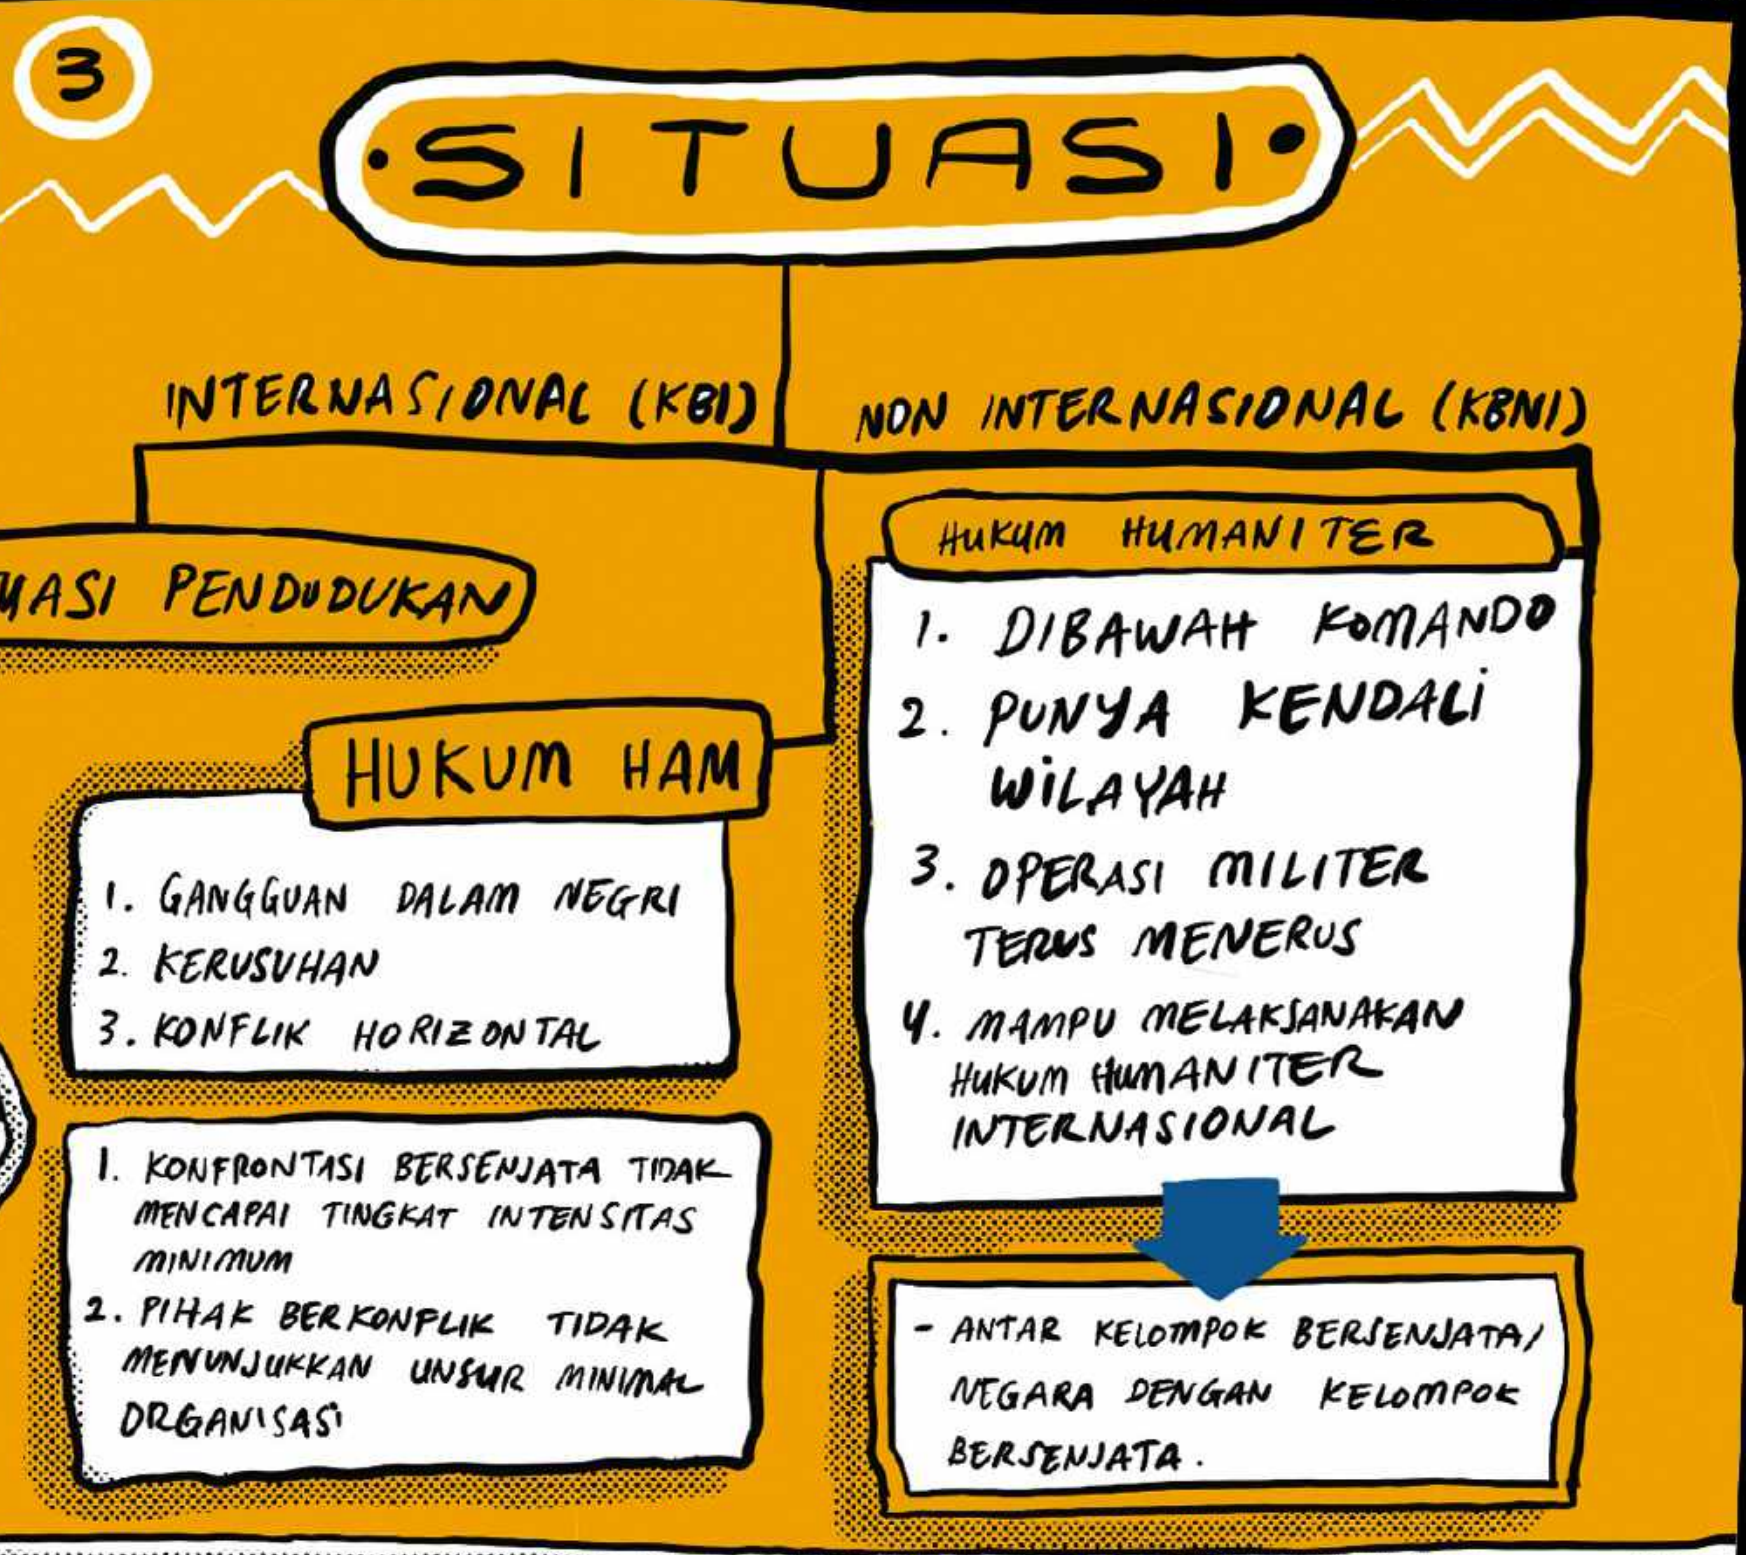 3
• SITUASI •
INTERNASIONAL (KBI)
NON INTERNASIONAL (KBNI)
PENDUDUKAN
HUKUM HAM
1. GANGGUAN DALAM NEGRI
2. KERUSUHAN
3. KONFLIK HORIZONTAL
1. KONFRONTASI BERSENJATA TIDAK
MENCAPAI TINGKAT INTENSITAS
MINIMUM
2. PIHAK BERKONFLIK TIDAK
MENUNJUKKAN UNSUR MINIMAL
ORGANISASI
HUKUM HUMANITER
1. DIBAWAH KOMANDO
2. PUNYA KENDALI
WILAYAH
3. OPERASI MILITER
TERUS MENERUS
4. MAMPU MELAKSANAKAN
HUKUM HUMANITER
INTERNASIONAL
- ANTAR KELOMPOK BERSENJATA/
NEGARA DENGAN KELOMPOK
BERSENJATA.